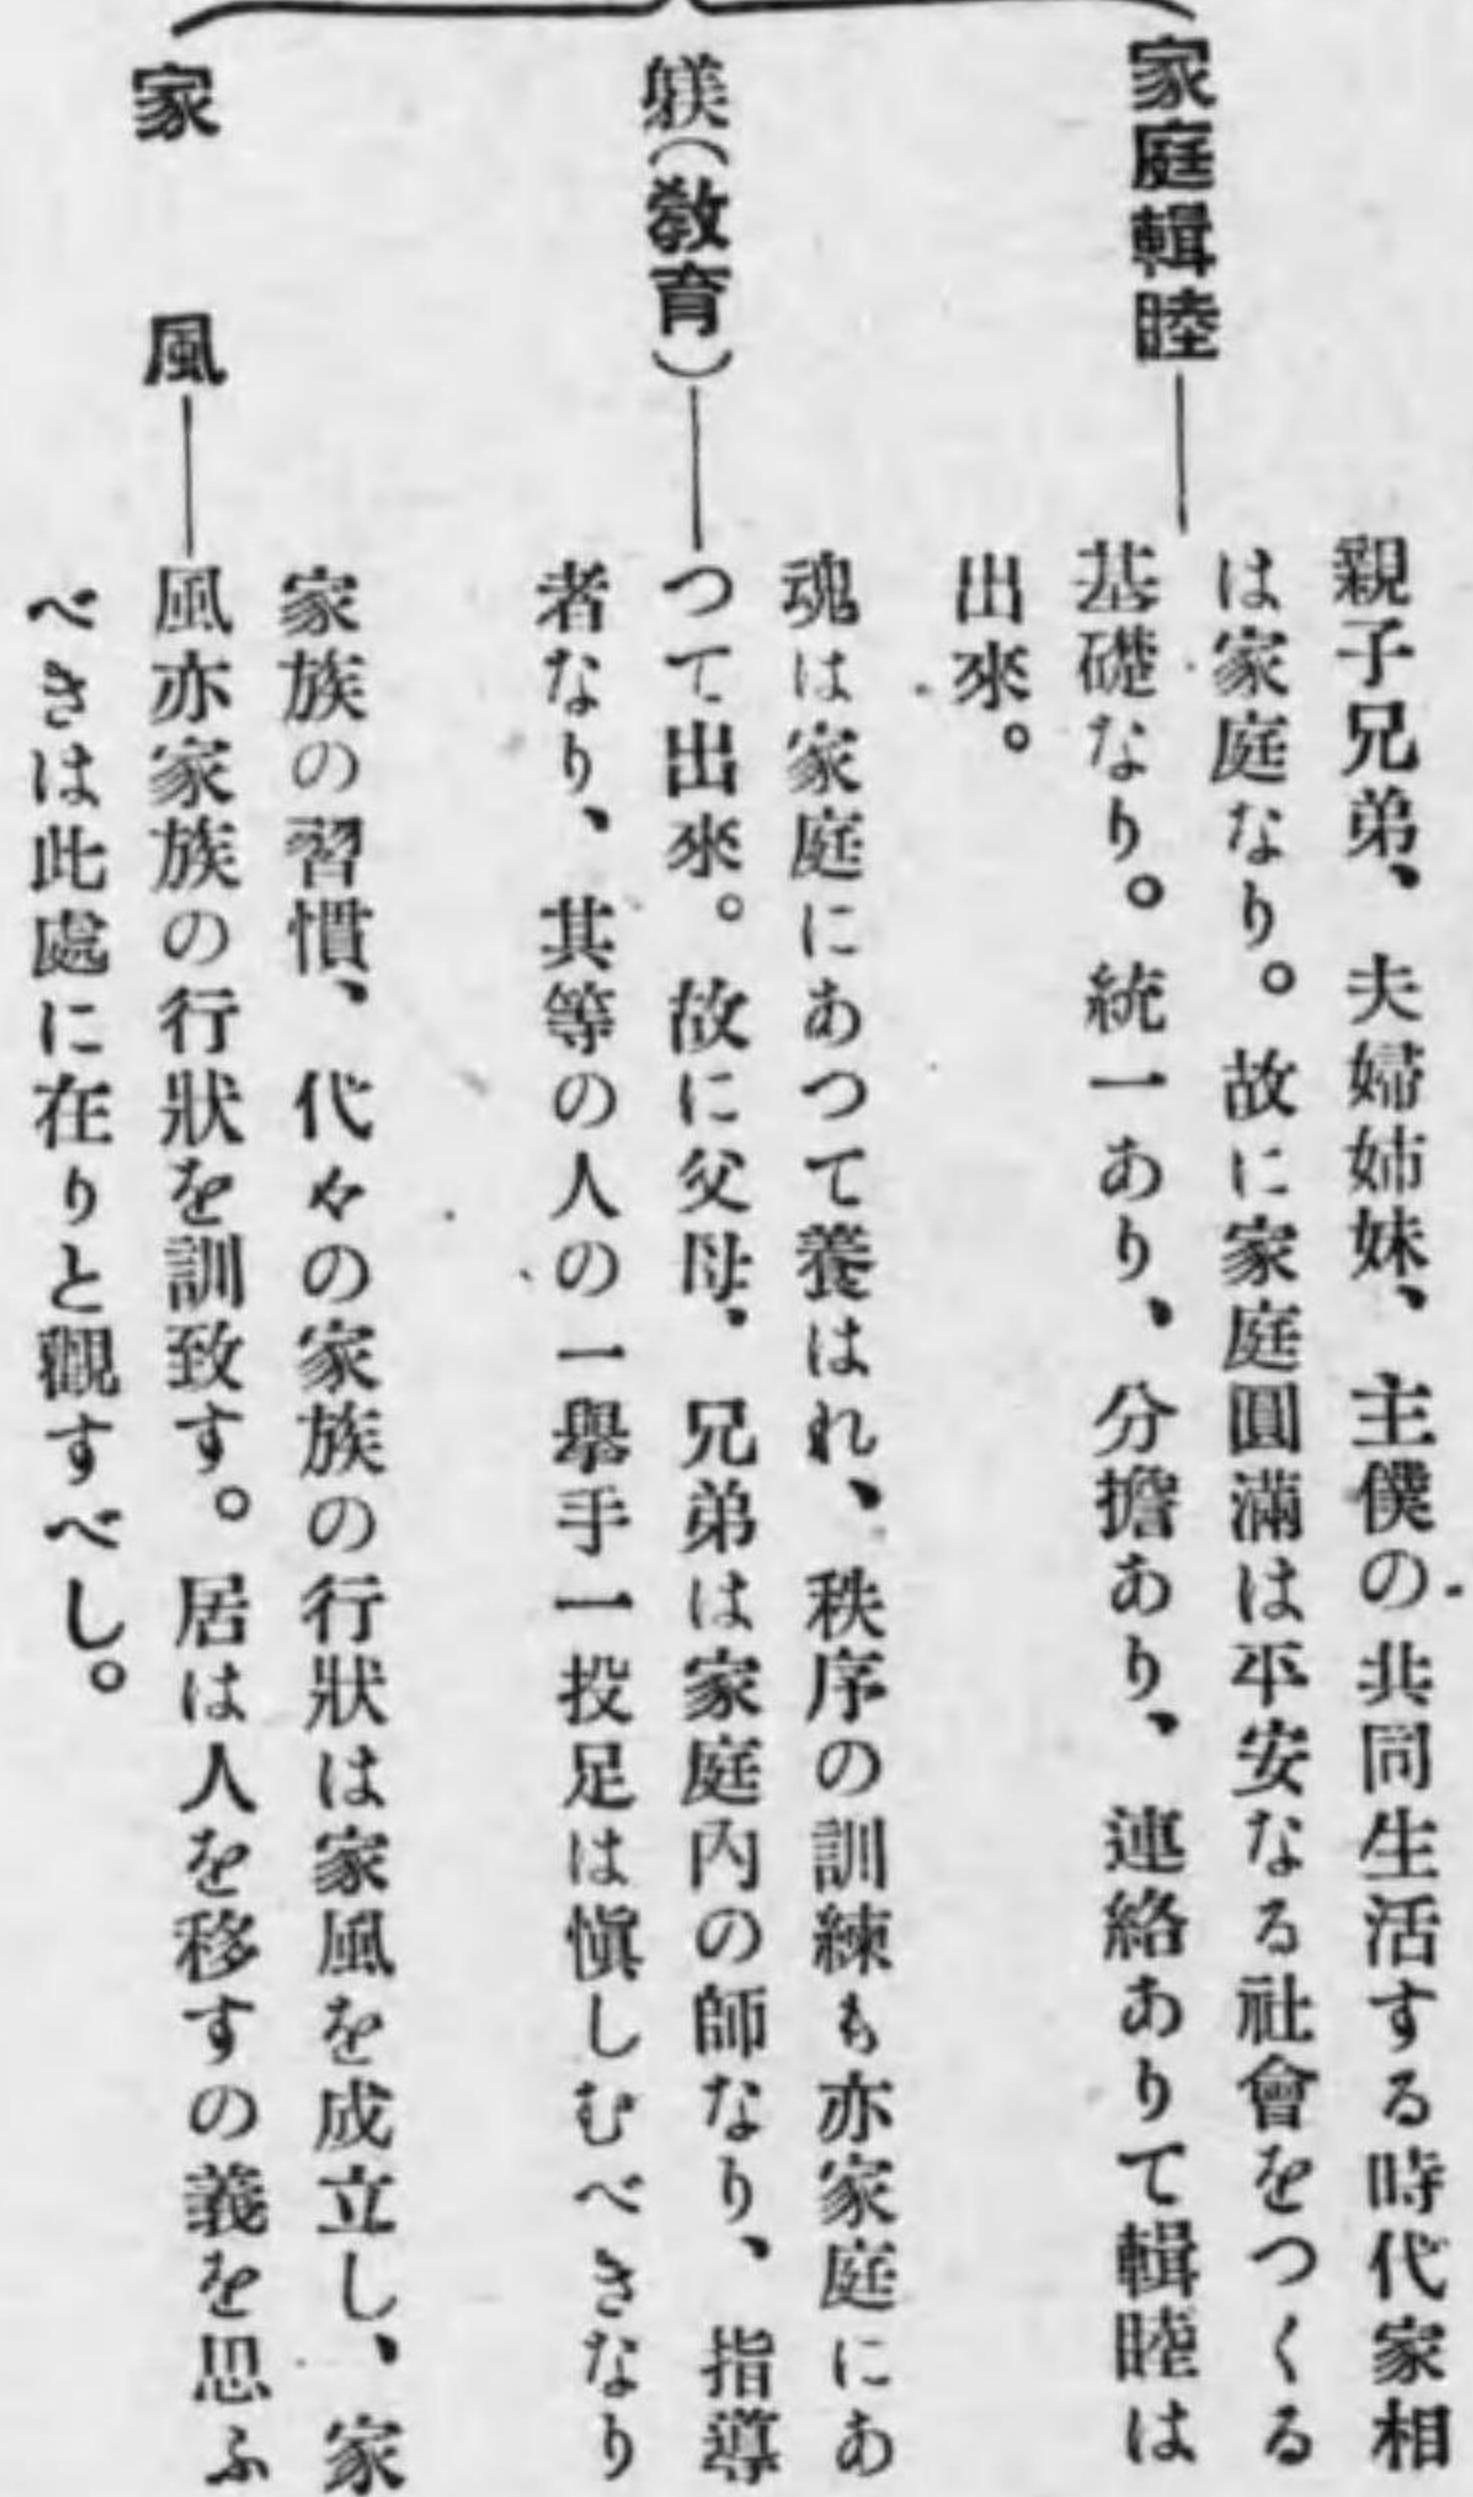 家庭輯睦
親子兄弟、夫婦姉妹、主僕の共同生活する時代家相
は家庭なり。故に家庭圓滿は平安なる社會をつくる
基礎なり。統一あり、分擔あり、連絡ありて輯睦は
出來。
躾(敎育)
魂は家庭にあつて養はれ、秩序の訓練も亦家庭にあ
つて出來。故に父母、兄弟は家庭內の師なり、指導
者なり、其等の人の一擧手一投足は愼しむべきなり
家風
家族の習慣、代々の家族の行狀は家風を成立し、家
風亦家族の行狀を訓致す。居は人を移すの義を思ふ
べきは此處に在りと觀すべし。